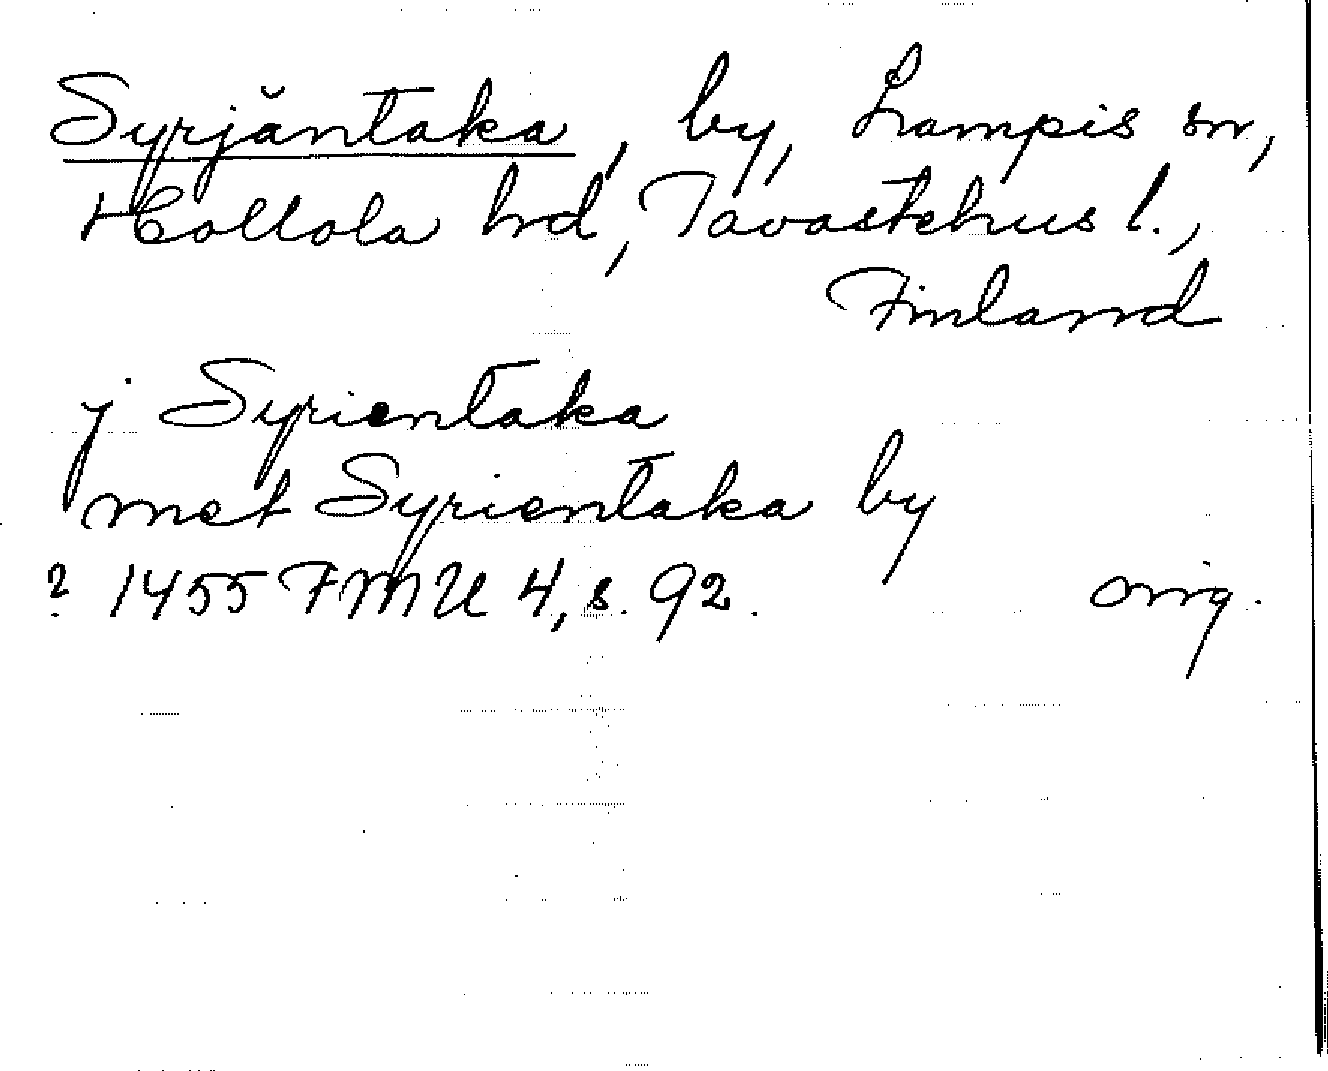 Syrjäntaka, by, Lampis sn,
Hollola hrd, Tavastehus l.,
Finland
j Syrientaka
met Syrientaka by
? 1455 FMU 4, s. 92. orig.